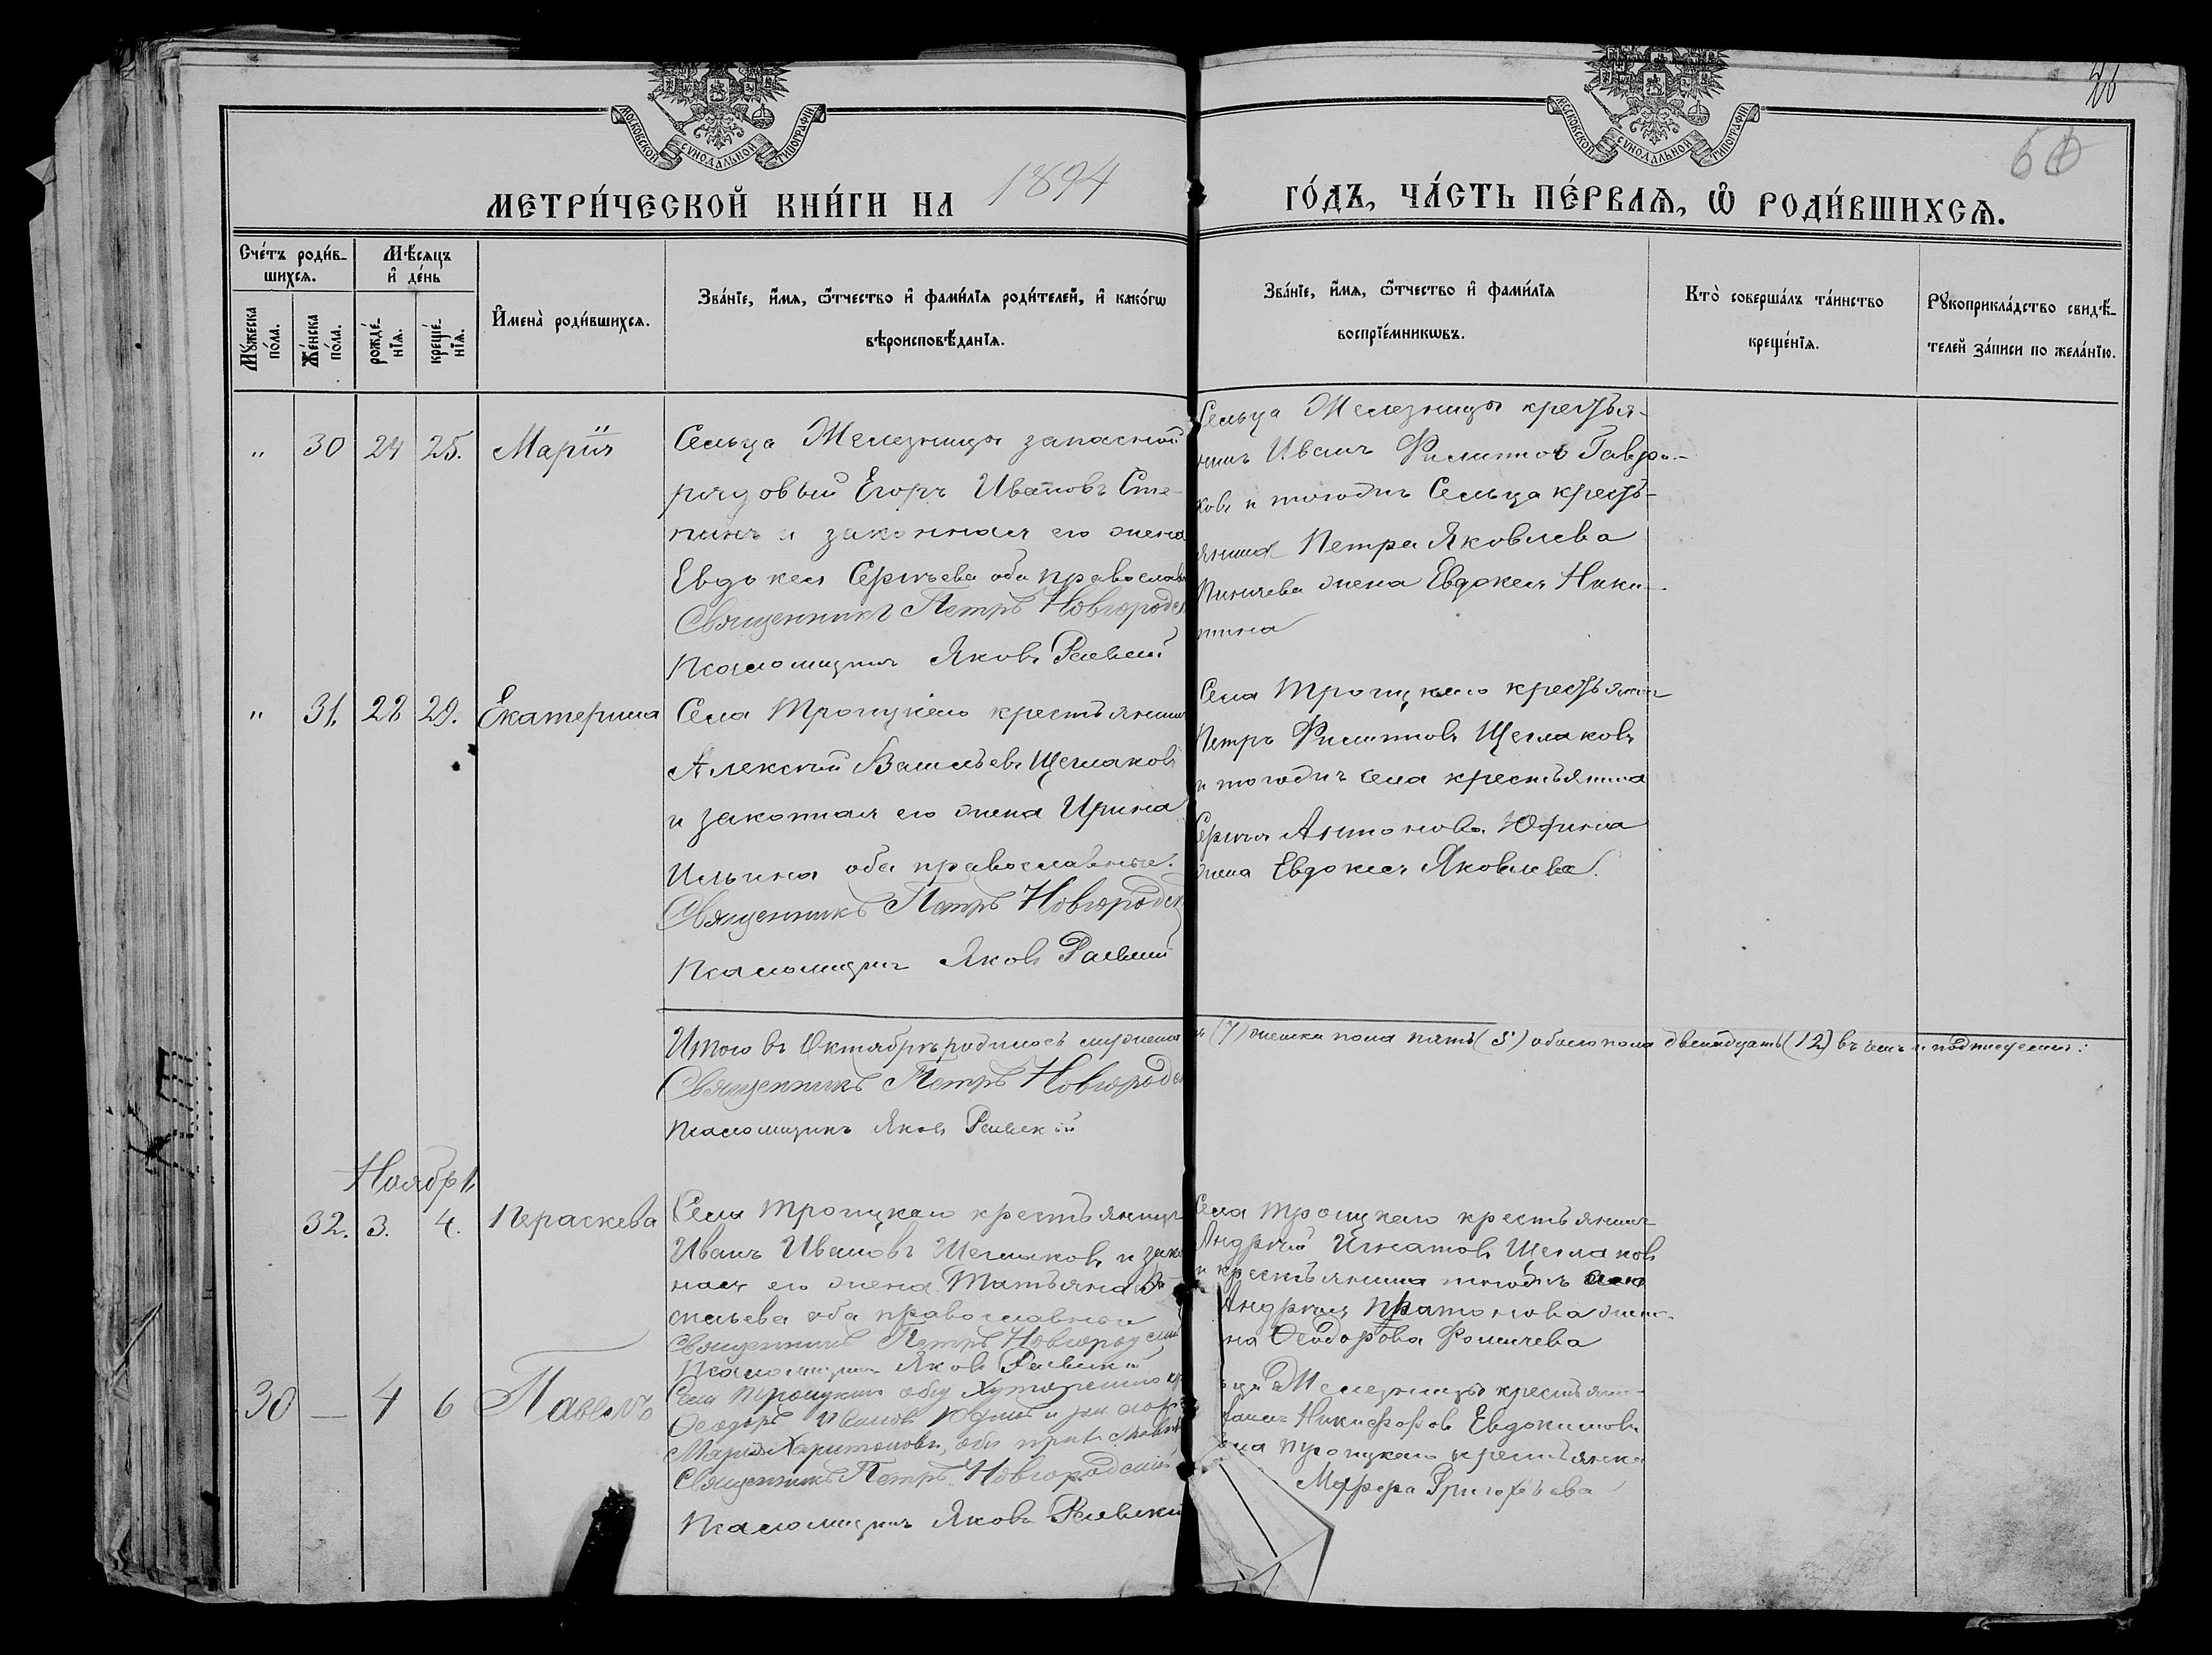 26
60
МОСКОВСКОЙ СѴНОДАЛЬНОЙ ТИПОГРАФІИ
МОСКОВСКОЙ СѴНОДАЛЬНОЙ ТИПОГРАФІИ
МЕТРИ́ЧЕСКОЙ КНИ́ГИ НА 1894 ГО́ДЪ, ЧА́СТЬ ПЕ́РВАѦ, Ѽ РОДИ́ВШИХСѦ.
Сче́тъ роди́в-
шихсѧ.
Мѣ́сяцъ
и҆ де́нь
Мꙋ́жеска по́ла.
Же́нска по́ла.
рожде́-
нїѧ.
креще́-
нїѧ.
И҆мена̀ роди́вшихсѧ.
Зва́нїе, и҆́мѧ, ѻ҆́тчество и҆ фами́лїѧ роди́телей, и҆ како́гѡ
вѣроисповѣ́данїѧ.
Зва́нїе, и҆́мѧ, ѻ҆́тчество и҆ фами́лїѧ
воспрїе́мникѡвъ.
Кто̀ соверша́лъ та́инство
креще́нїѧ.
Рꙋкоприкла́дство свидѣ́-
телей за́писи по жела́нїю.
" 30 24 25. Марія
Сельца Железницы запасной
рядовый Егоръ Ивановъ Сте-
пинъ и законная его жена
Евдокея Сергѣева оба православ
Священникъ Петръ Новгородск
Псаломщикъ Яковъ Раевскій
Сельца Железницы крестья-
нинъ Иванъ Филипповъ Гаври-
ковъ и тогожъ Сельца кресть-
янина Петра Яковлева
жена Евдокея Ники-
тина
" 31. 28 29. Екатерина
Села Троицкаго крестьянинъ
Алексѣй Васильевъ Щеглаковъ
и законная его жена Ирина
Ильина оба православные.
Священникъ Петръ Новгородск
Псаломщикъ Яковъ Раевскій
Села Троицкаго крестьянинъ
Петръ Филипповъ Щеглаковъ
и тогожъ села крестьянина
Сергѣя Антонова Юфина
жена Евдокея Яковлева.
Итого въ Октябрѣ родилось мужска (7) женска пола пять (5) обоего пола двенадцать (12) въ чемъ и подписуемся:
Священникъ Петръ Новгородск
Псаломщикъ Яковъ Раевскій
Ноябрь
32. 3. 4. Параскева
Села Троицкаго крестьянинъ
Иванъ Ивановъ Щеглаковъ и зако
ная его жена Татьяна Ва
сильева оба православные
Священникъ Петръ Новгородскій
Псаломщикъ Яковъ Раевскій
Села Троицкаго крестьянинъ
Андрей Игнатовъ Щеглаковъ
и крестьянина тогожъ села
Андрея Платонова жена
Ѳеодорова Фомичева
30 — 4 6 Павелъ
Села Троицкаго
Ѳеодоръ Ивановъ Юфинъ и
Марія Харитонова, оба правосл
Священникъ Петръ Новгородскій
Псаломщикъ Яковъ Раевскій
Железницы крестьян-
Никифоровъ Евдокимовъ
Троицкаго крестьянка
Григорьева